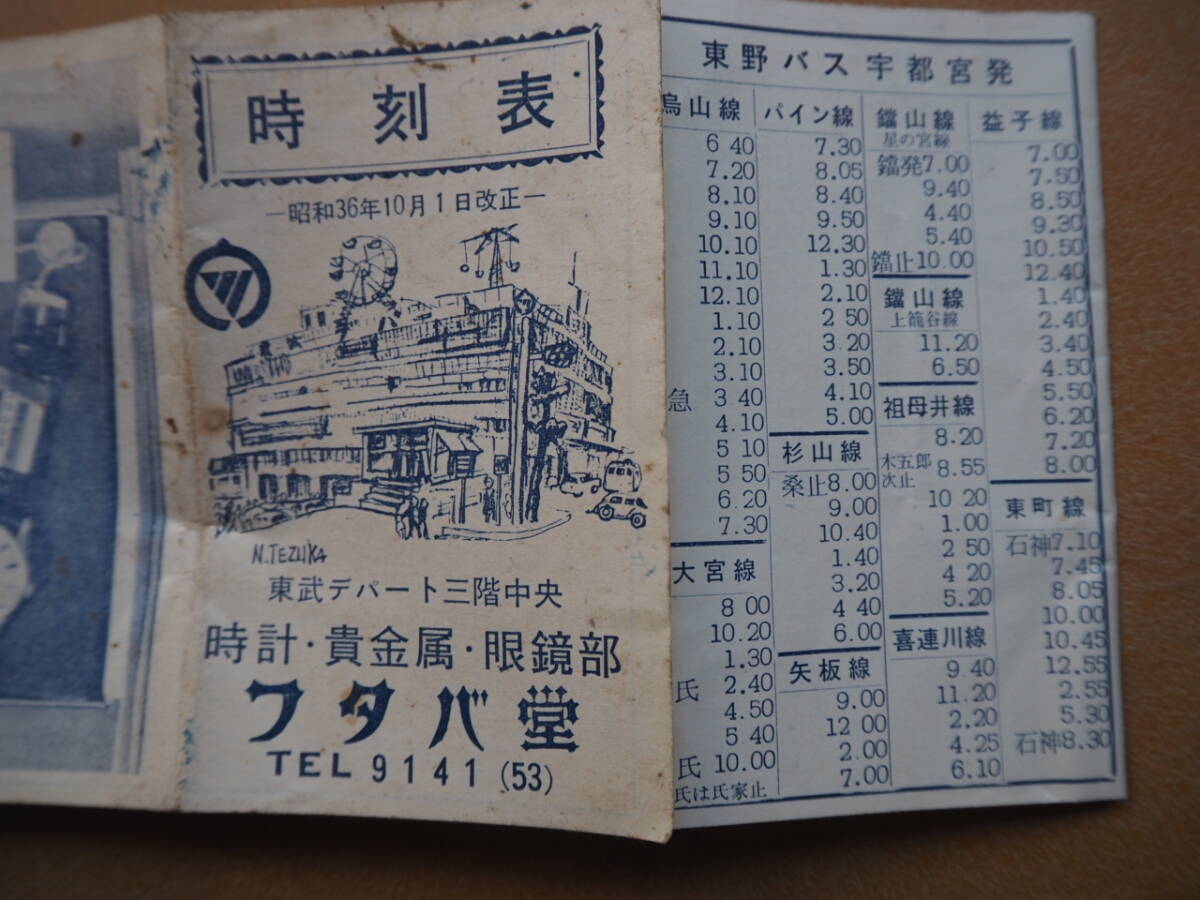 時刻表
—昭和36年10月1日改正—
N.TEZUKA
東武デパート三階中央
時計・貴金属・眼鏡部
フタバ堂
TEL 9141 (53)
東野バス宇都宮発
烏山線
6 40
7.20
8.10
9.10
10.10
11.10
12.10
1.10
2.10
3.10
急 3 40
4.10
5 10
5 50
6 20
7.30
大宮線
8 00
10.20
1.30
氏 2.40
4.50
5 40
氏 10.00
氏は氏家止
パイン線
7.30
8.05
8.40
9.50
12.30
1.30
2.10
2 50
3.20
3.50
4.10
5.00
杉山線
桑止8.00
9.00
10.40
1.40
3.20
4 40
6.00
矢板線
9.00
12 00
2.00
7.00
鐺山線
星の宮線
鐺発7.00
9.40
4.40
5.40
鐺止10.00
鐺山線
上籠谷線
11.20
6.50
祖母井線
8.20
木五郎次止 8.55
10 20
1.00
2 50
4 20
5.20
喜連川線
9 40
11.20
2.20
4.25
6.10
益子線
7.00
7.50
8.50
9.30
10.50
12.40
1.40
2.40
3.40
4.50
5.50
6.20
7.20
8.00
東町線
石神7.10
7.45
8.05
10.00
10.45
12.55
2.55
5.30
石神8.30